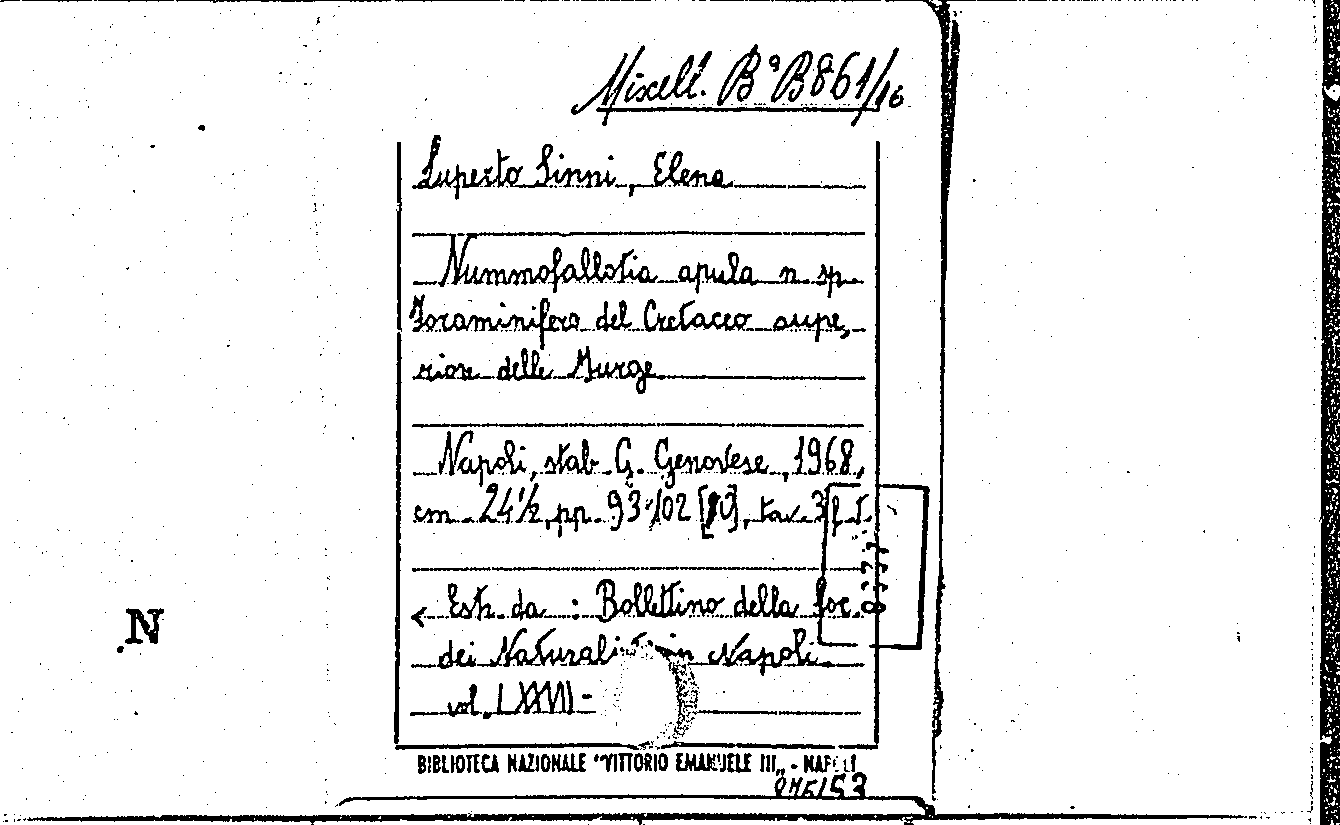 Miscell. Bª B861/16
Luperto Sinni, Elena
Nummofallotia apula n. sp.
Foraminifero del Cretaceo supe,
riore delle Murge
Napoli, stab. G. Genovese, 1968,
cm. 24½, pp. 93-102 [10], tav. 3 f. t.
N
Estr. da : Bollettino della Soc.
dei Naturalisti in Napoli.
vol. LXXVII -
BIBLIOTECA NAZIONALE "VITTORIO EMANUELE III„ - NAPOLI